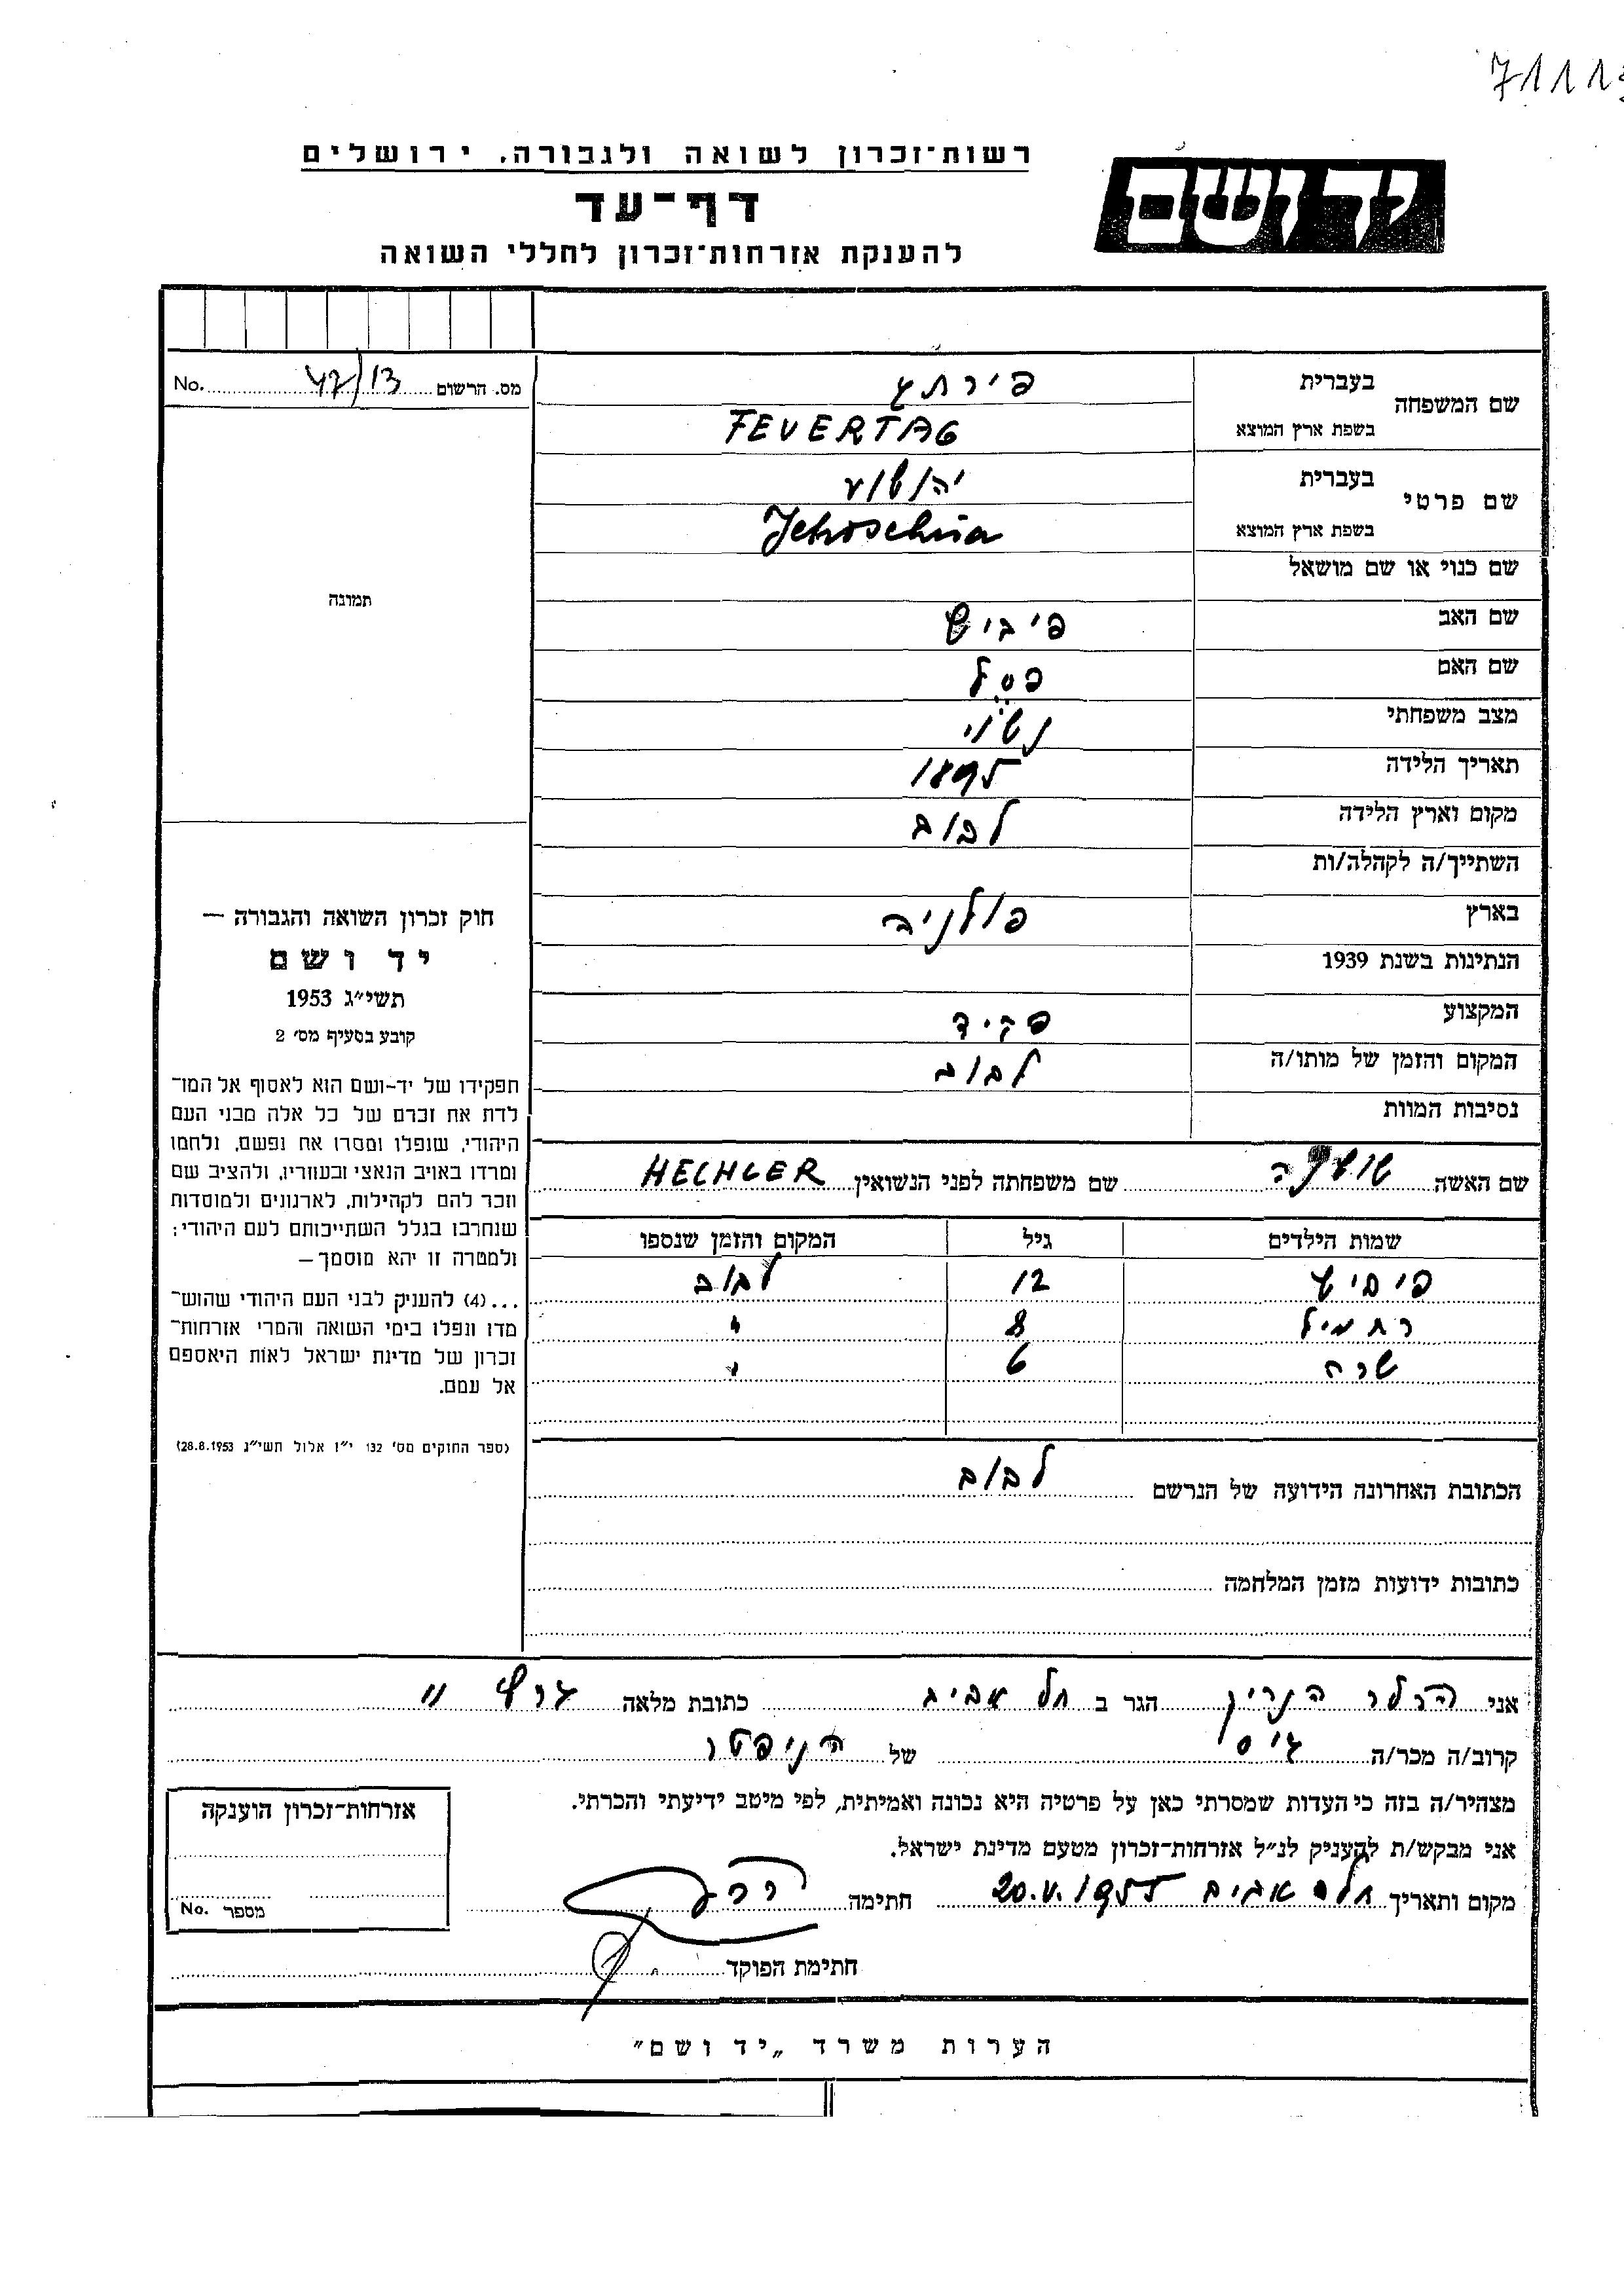 7111
רשות־זכרון לשואה ולגבורה, ירושלים
יד ושם
דף־עד
להענקת אזרחות־זכרון לחללי השואה
מס. הרשום 47/13 No.
שם המשפחה
בעברית
בשפת ארץ המוצא FEVERTAG
שם פרטי
בעברית יהושע
בשפת ארץ המוצא Jehoschua
שם כנוי או שם מושאל
תמונה
שם האב פיביש
שם האם פסל
מצב משפחתי נשוי
תאריך הלידה 1895
מקום וארץ הלידה לבוב
השתייך/ה לקהלה/ות
בארץ פולניה
הנתינות בשנת 1939
המקצוע פקיד
המקום והזמן של מותו/ה לבוב
נסיבות המוות
חוק זכרון השואה והגבורה —
יד ושם
תשי״ג 1953
קובע בסעיף מס׳ 2
תפקידו של יד-ושם הוא לאסוף אל המו־
לדת את זכרם של כל אלה מבני העם
היהודי, שנפלו ומסרו את נפשם, נלחמו
ומרדו באויב הנאצי ובעוזריו, ולהציב שם
וזכר להם לקהילות, לארגונים ולמוסדות
שנחרבו בגלל השתייכותם לעם היהודי;
ולמטרה זו יהא מוסמך —
...(4) להעניק לבני העם היהודי שהוש־
מדו ונפלו בימי השואה והמרי אזרחות־
זכרון של מדינת ישראל לאות היאספם
אל עמם.
(ספר החוקים מס׳ 132 י״ז אלול תשי״ג 28.8.1953)
שם האשה שושנה שם משפחתה לפני הנשואין HECHLER
שמות הילדים גיל המקום והזמן שנספו
פיביש 12 לבוב
ירחמיאל 8 "
שרה 6 "
הכתובת האחרונה הידועה של הנרשם לבוב
כתובות ידועות מזמן המלחמה
אני הכלר הנריק הגר ב תל אביב כתובת מלאה 11
קרוב/ה מכר/ה גיס של הניפטר
מצהיר/ה בזה כי העדות שמסרתי כאן על פרטיה היא נכונה ואמיתית, לפי מיטב ידיעתי והכרתי.
אני מבקש/ת להעניק לנ״ל אזרחות־זכרון מטעם מדינת ישראל.
מקום ותאריך תל אביב 20.V.1955 חתימה
אזרחות־זכרון הוענקה
מספר No.
חתימת הפוקד
הערות משרד „יד ושם"